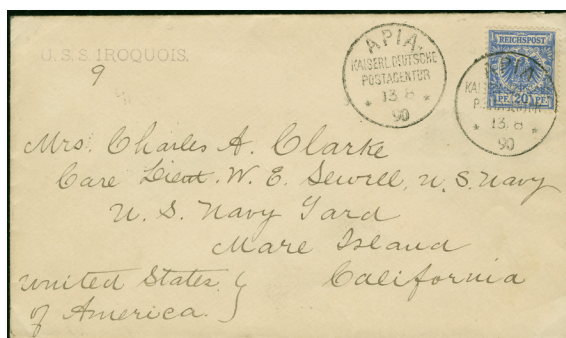 U. S. S. IROQUOIS.
9
APIA.
KAISERL. DEUTSCHE
POSTAGENTUR
* 13 8 *
90
REICHSPOST
PF. 20 PF.
APIA
* 13 8 *
90
Mrs. Charles A. Clarke
Care Lieut. W. E. Sewell, U. S. Navy
U. S. Navy Yard
Mare Island
California
United States
of America.